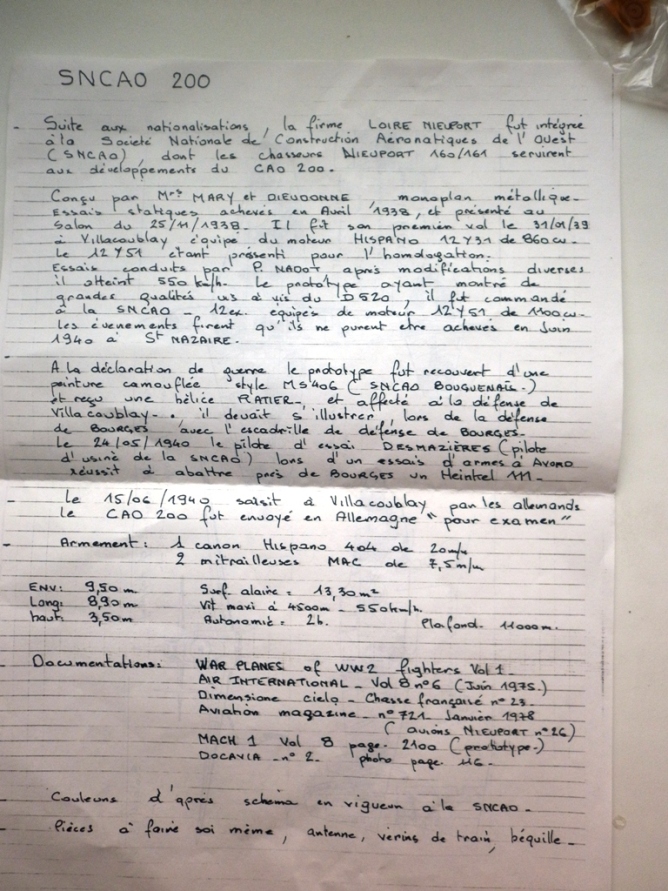 SNCAO 200
- Suite aux nationalisations, la firme LOIRE NIEUPORT fut intégrée
à la Societé Nationale de Construction Aéronatiques de l'Ouest
(SNCAO), dont les chasseurs NIEUPORT 160/161 servirent
aux développements du CAO 200.
Conçu par Mrs MARY et DIEUDONNE, monoplan métallique.
Essais statiques achevés en Avril 1938, et présenté au
Salon du 25/11/1938. Il fit son premier vol le 31/01/39
à Villacoublay équipé du moteur HISPANO 12Y31 de 860cv.
Le 12Y51 étant présenti pour l'homologation.
Essais conduits par P. NADOT après modifications diverses
il atteint 550 km/h. Le prototype ayant montré de
grandes qualités vis à vis du D520, il fut commandé
à la SNCAO - 12ex. équipés de moteur 12Y51 de 1100cv.
les évenements firent qu'ils ne purent etre achevés en Juin
1940 à St NAZAIRE.
- A la déclaration de guerre le prototype fut recouvert d'une
peinture camouflée style MS406 (SNCAO BOUGUENAIS.)
et reçu une hélice RATIER, et affecté à la défense de
Villacoublay-. il devait s'illustrer lors de la défense
de BOURGES avec l'escadrille de défense de BOURGES-
Le 24/05/1940 le pilote d'essai DESMAZIÈRES (pilote
d'usine de la SNCAO) lors d'un essais d'armes à Avord
réussit à abattre près de BOURGES un Heinkel 111-
- le 15/06/1940 saisit à Villacoublay par les allemands
le CAO 200 fut envoyé en Allemagne "pour examen"
- Armement: 1 canon Hispano 404 de 20m/m
2 mitrailleuses MAC de 7,5m/m
ENV: 9,50m Surf. alaire = 13,30m²
Long: 8,90m Vit maxi à 4500m - 550km/h.
haut: 3,50m Autonomie = 2h. Plafond. 11000m.
- Documentations: WAR PLANES of WW2 fighters Vol 1
AIR INTERNATIONAL - Vol 8 n°6 (Juin 1975.)
Dimensione cielo - Chasse française n° 23.
Aviation magazine n° 721 Janvier 1978
(avions NIEUPORT n°26)
MACH 1 Vol 8 page. 2100 (prototype-)
DOCAVIA - n° 2. photo page 116.
- Couleurs d'après schéma en vigueur à la SNCAO -
- Pièces à faire soi même, antenne, vérins de train, béquille-